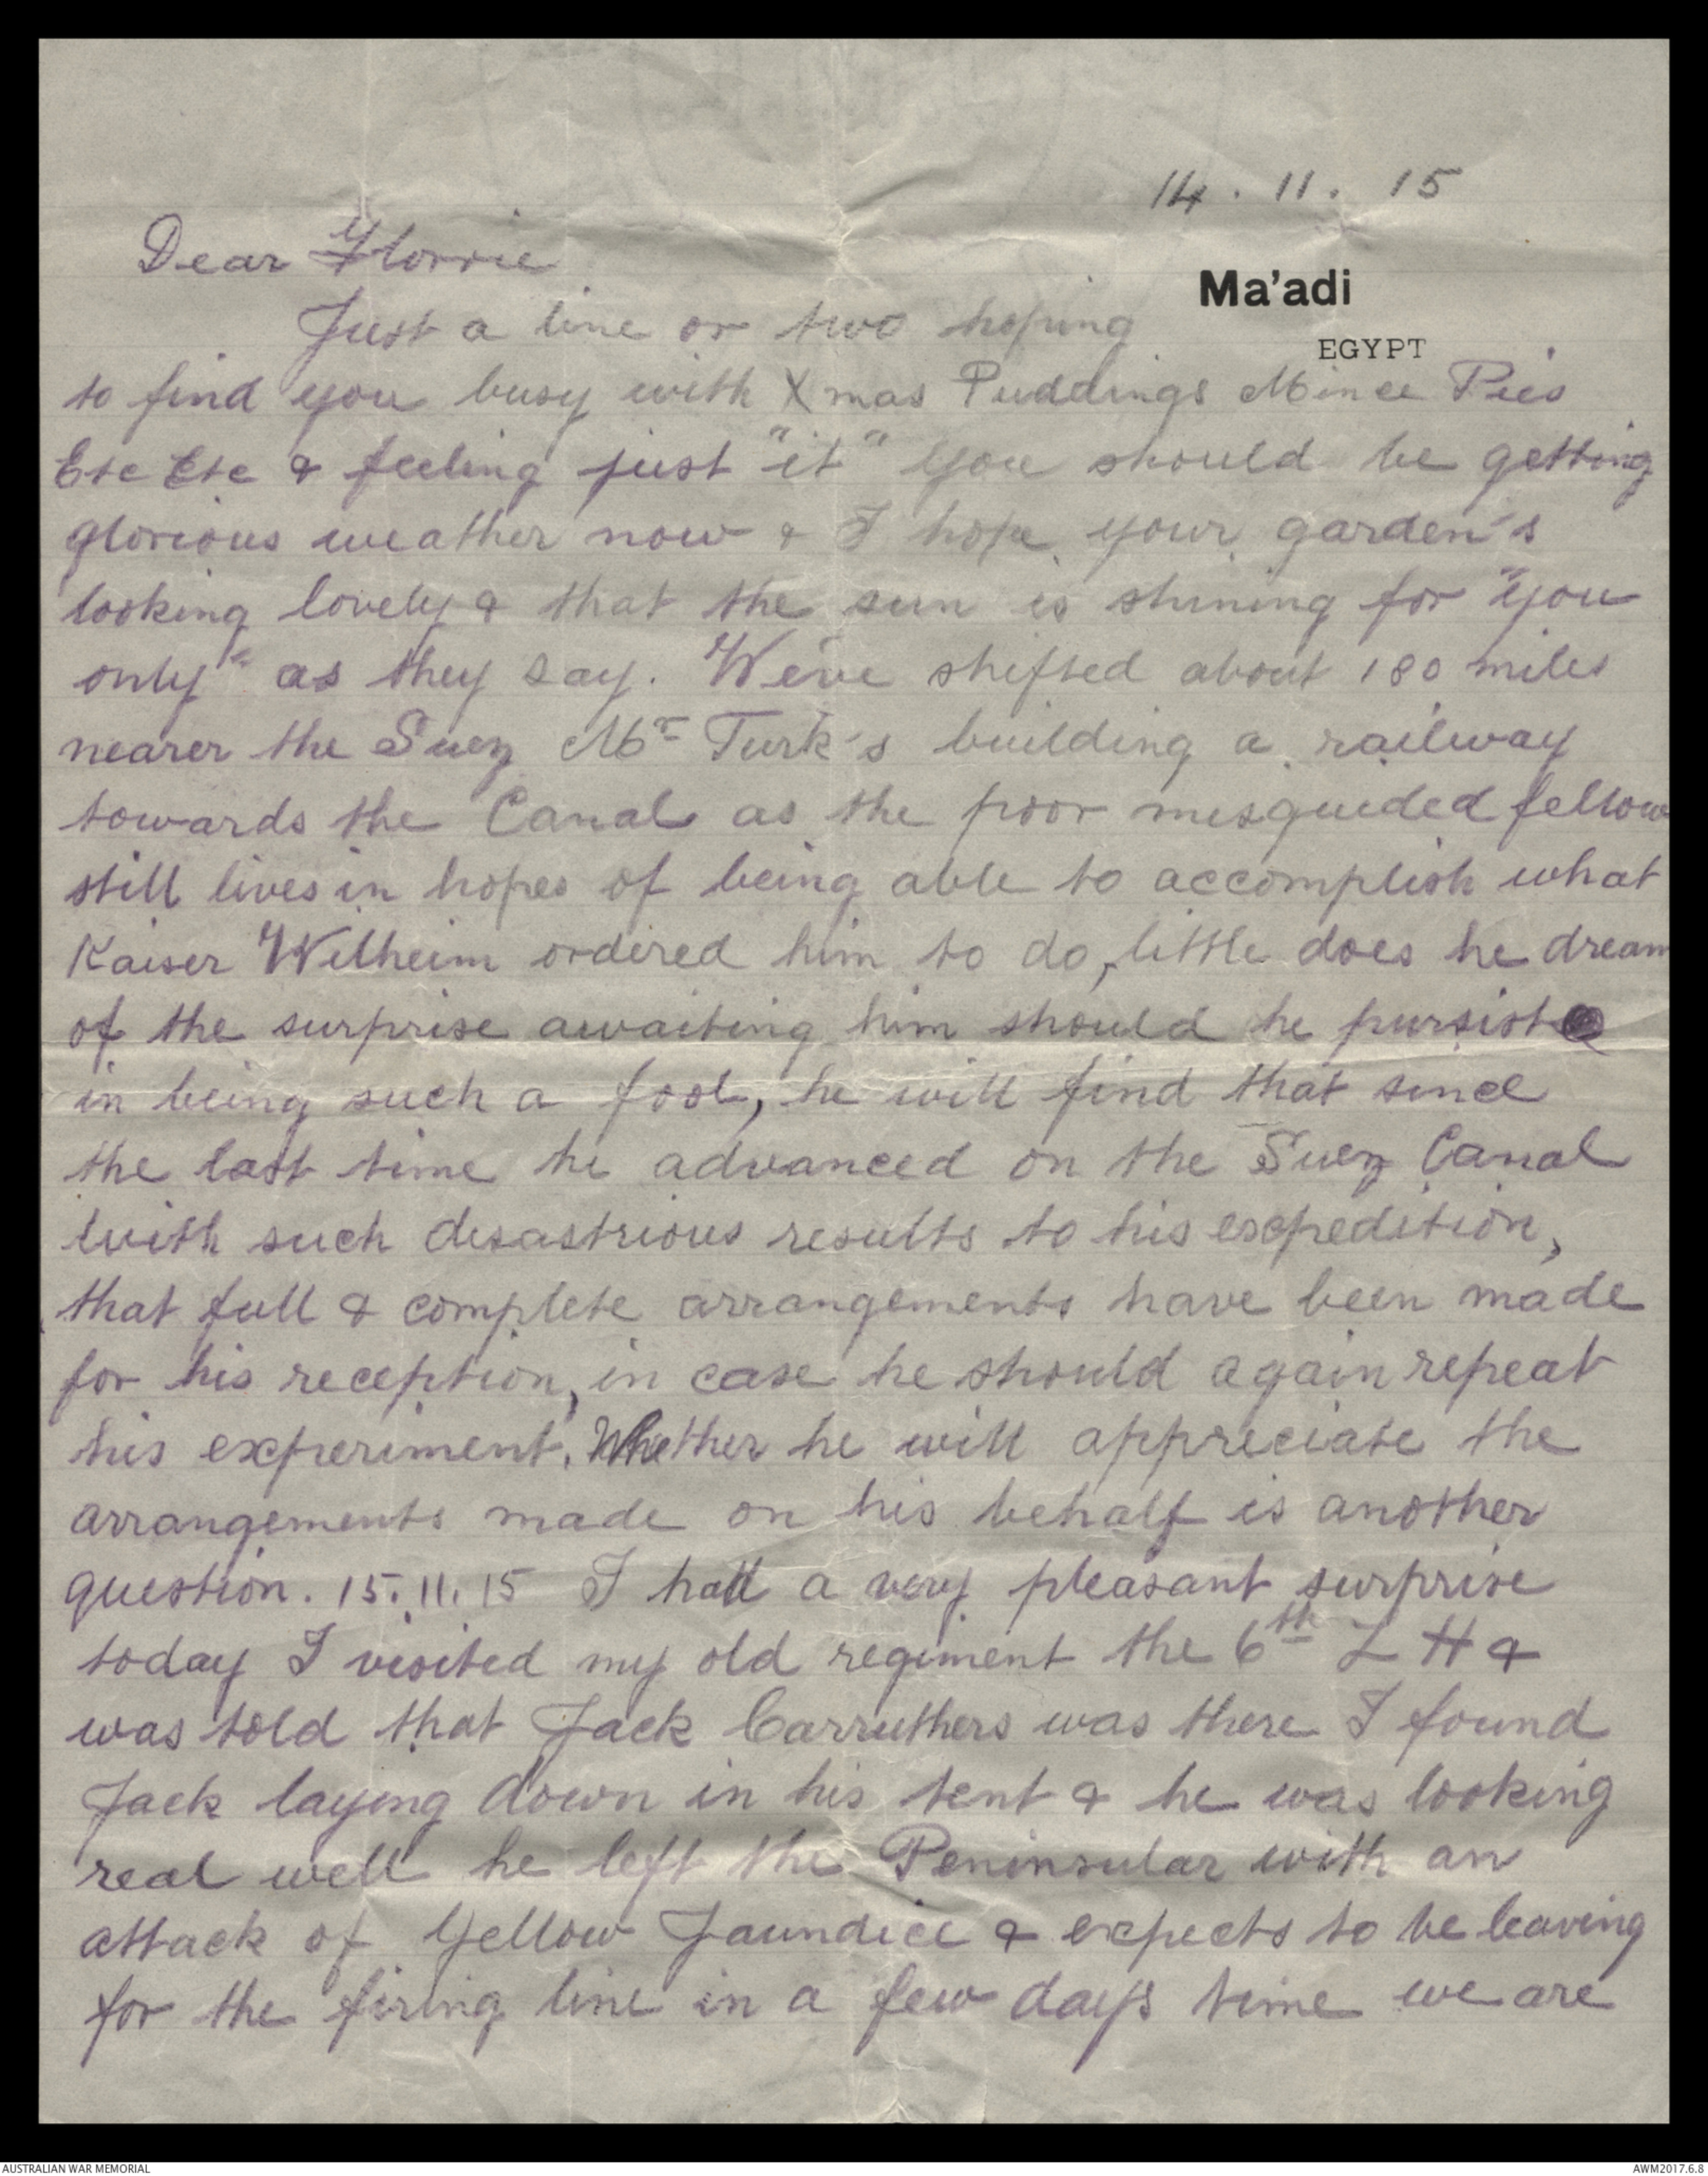 14. 11. 15
Dear Florrie
Ma'adi
Just a line or two hoping
EGYPT
to find you busy with Xmas Puddings Mince Pies
Etc Etc & feeling just "it" You should be getting
glorious weather now & I hope your garden's
looking lovely & that the sun is shining for "you
only" as they say. We've shifted about 180 miles
nearer the Suez Mr Turk's building a railway
towards the Canal as the poor misguided fellow
still lives in hopes of being able to accomplish what
Kaiser Wilheim ordered him to do, little does he dream
of the surprise awaiting him should he pursist
in being such a fool, he will find that since
the last time he advanced on the Suez Canal
with such desastrious results to his expedition,
that full & complete arrangements have been made
for his reception, in case he should again repeat
his experiment. Whether he will appreciate the
arrangements made on his behalf is another
question. 15.11.15 I had a very pleasant surprise
today I visited my old regiment the 6th L H &
was told that Jack Carruthers was there I found
Jack laying down in his tent & he was looking
real well he left the Peninsular with an
attack of Yellow Jaundice & expects to be leaving
for the firing line in a few days time we are
AUSTRALIAN WAR MEMORIAL
AWM2017.6.8